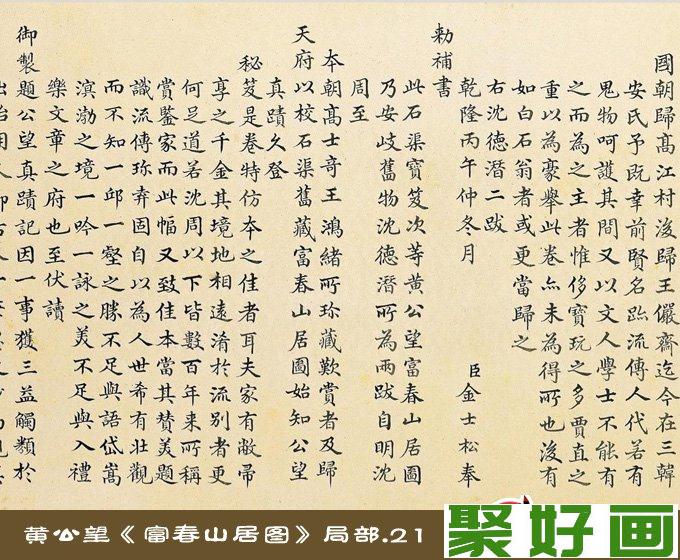 國朝歸高江村後歸王儼齋迄今在三韓
安氏予既幸前賢名跡流傳人代若有
鬼物呵護其間又以文人學士不能有
之而為之主者惟侈寶玩之多賈直之
重以為豪舉此卷亦未為得所也後有
如白石翁者或更當歸之
右沈德潛二跋
乾隆丙午仲冬月 臣金士松奉
勅補書
此石渠寶笈次等黃公望富春山居圖
乃安岐舊物沈德潛所為兩跋自明沈
周至
本朝高士奇王鴻緒所珎藏歎賞者及歸
天府以校石渠舊藏富春山居圖始知公望
真蹟久登
秘笈是卷特仿本之佳者耳夫家有敝帚
享之千金其境地相遠淆於流別者更
何足道若沈周以下皆數百年來所稱
賞鑒家而此幅又致佳本當其贊美題
識流傳珎弆固自以為人世希有壯觀
而不知一邱一壑之勝不足與語岱嵩
溟渤之境一吟一詠之美不足與入禮
樂文章之府也至伏讀
御製題公望真蹟記因一事獲三益觸類於
黄公望《富春山居图》局部.21
聚好画